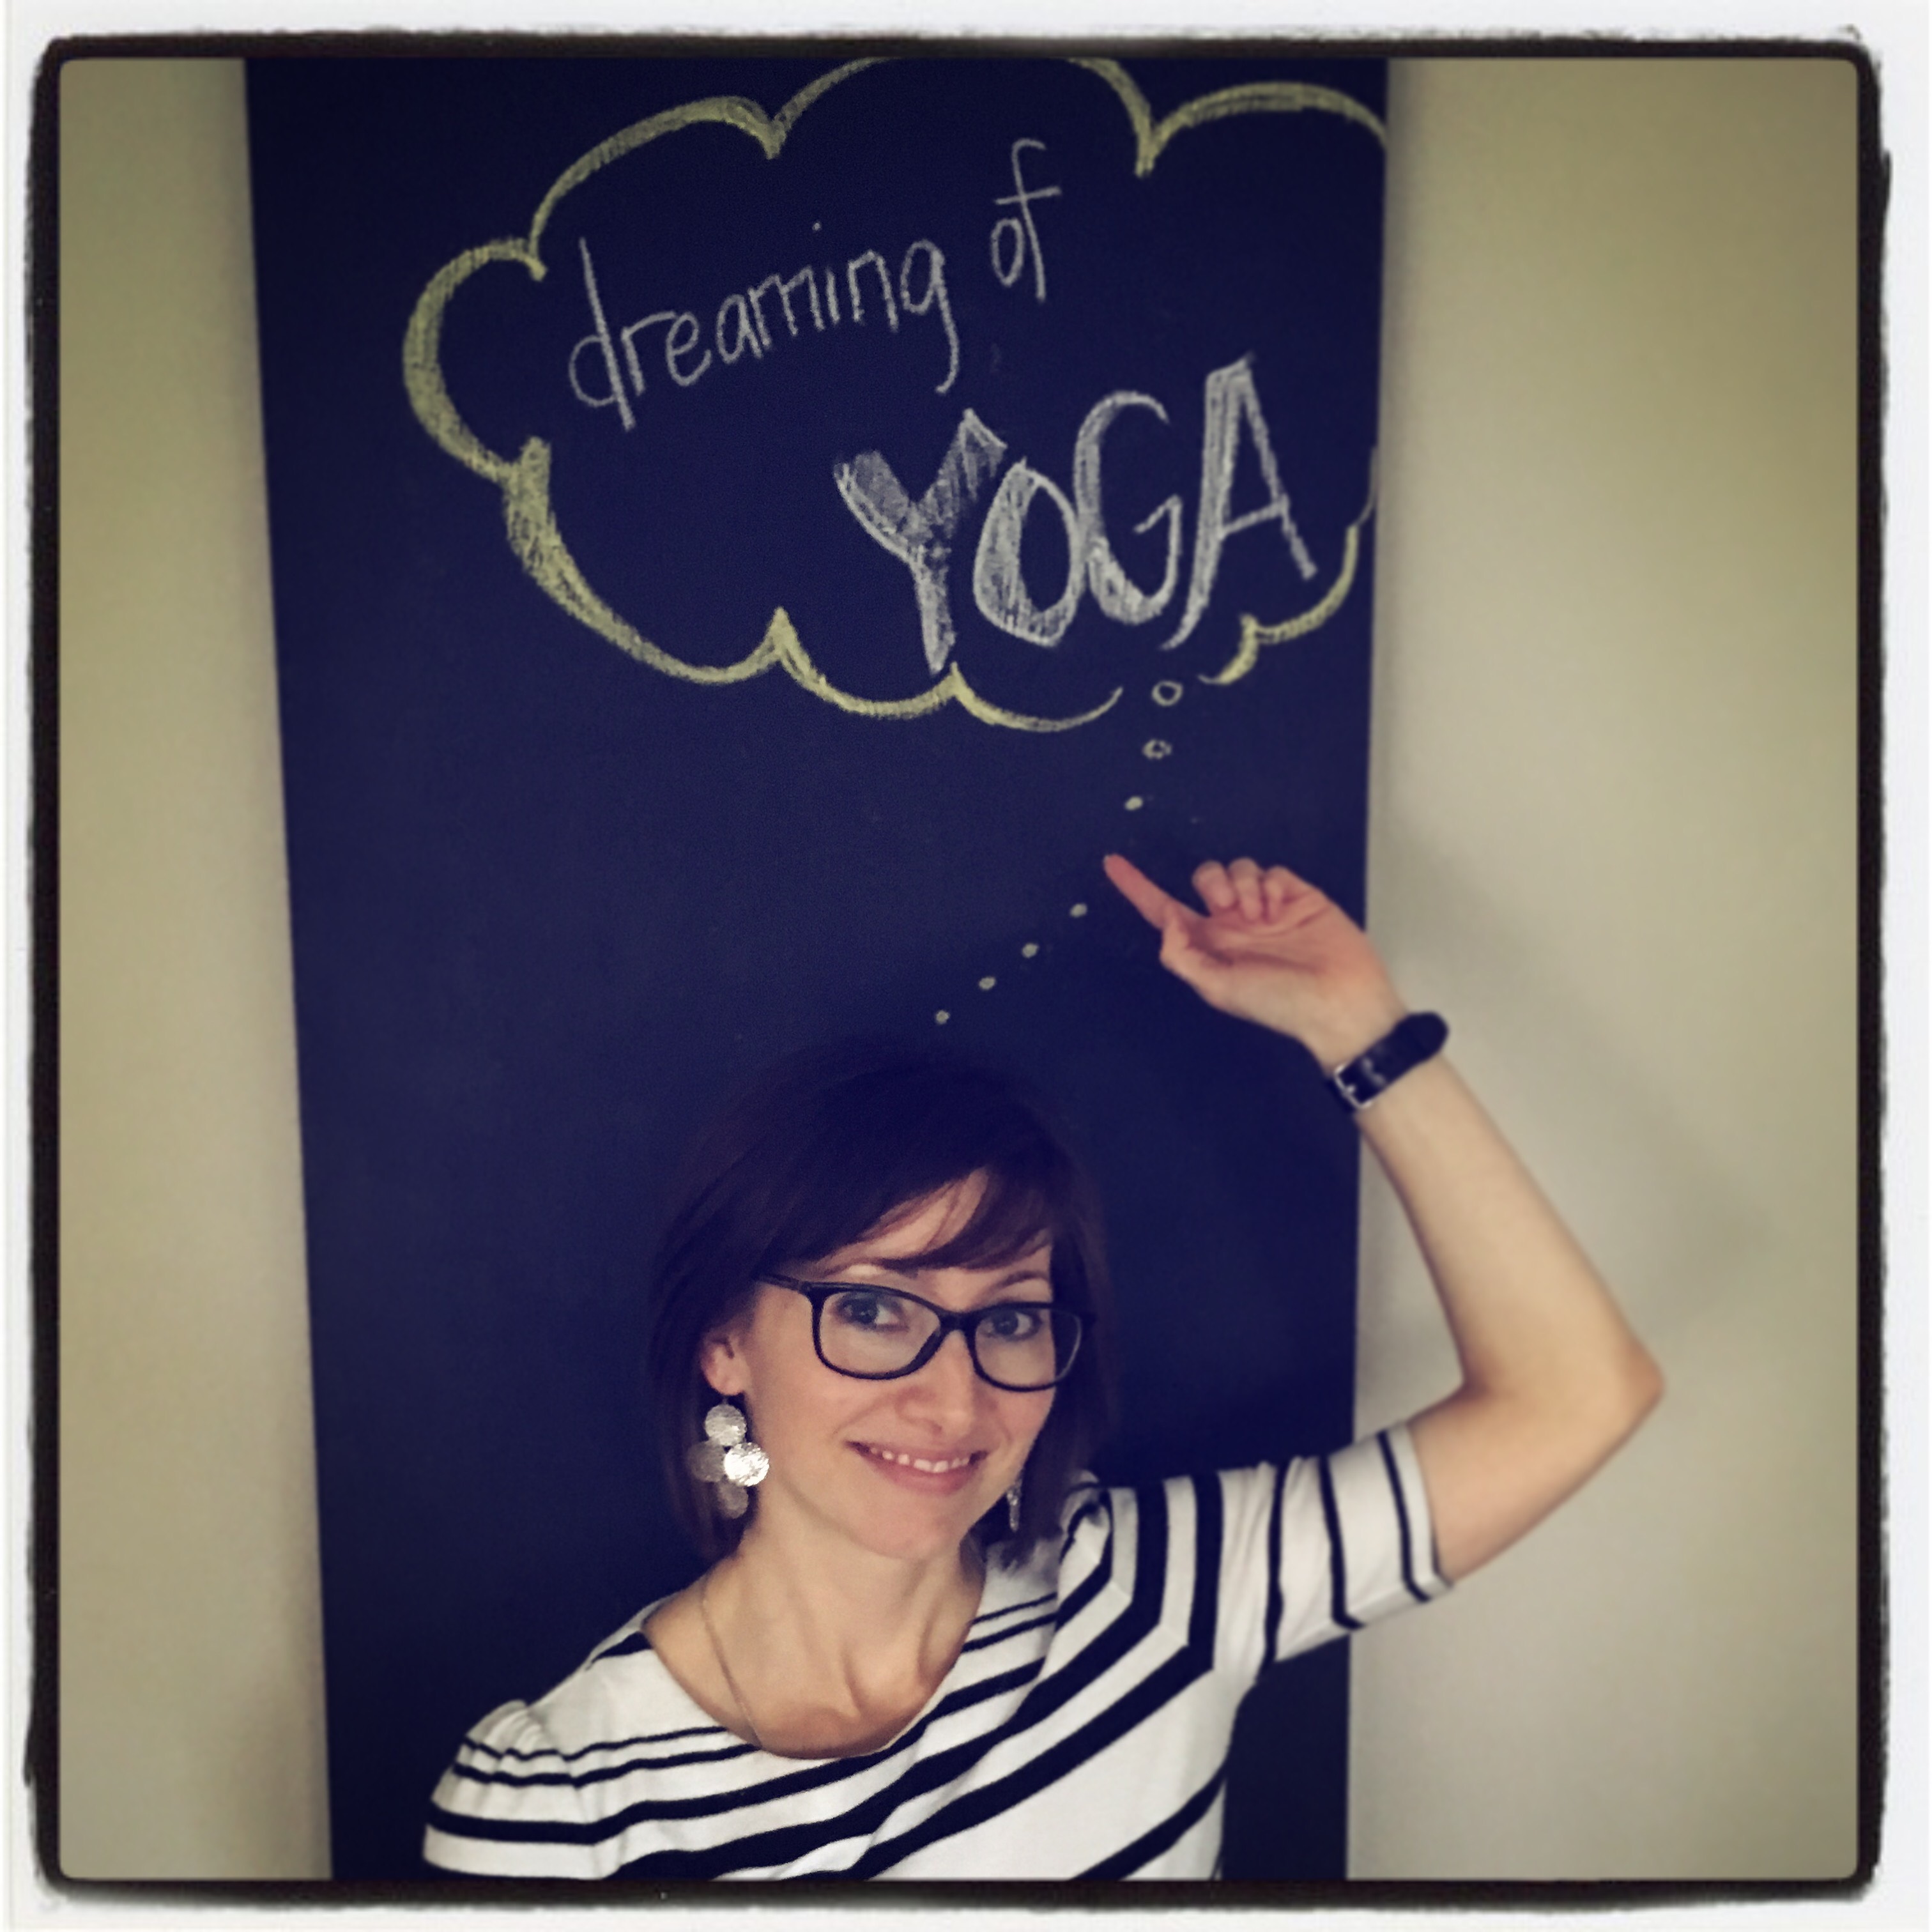 dreaming of
YOGA